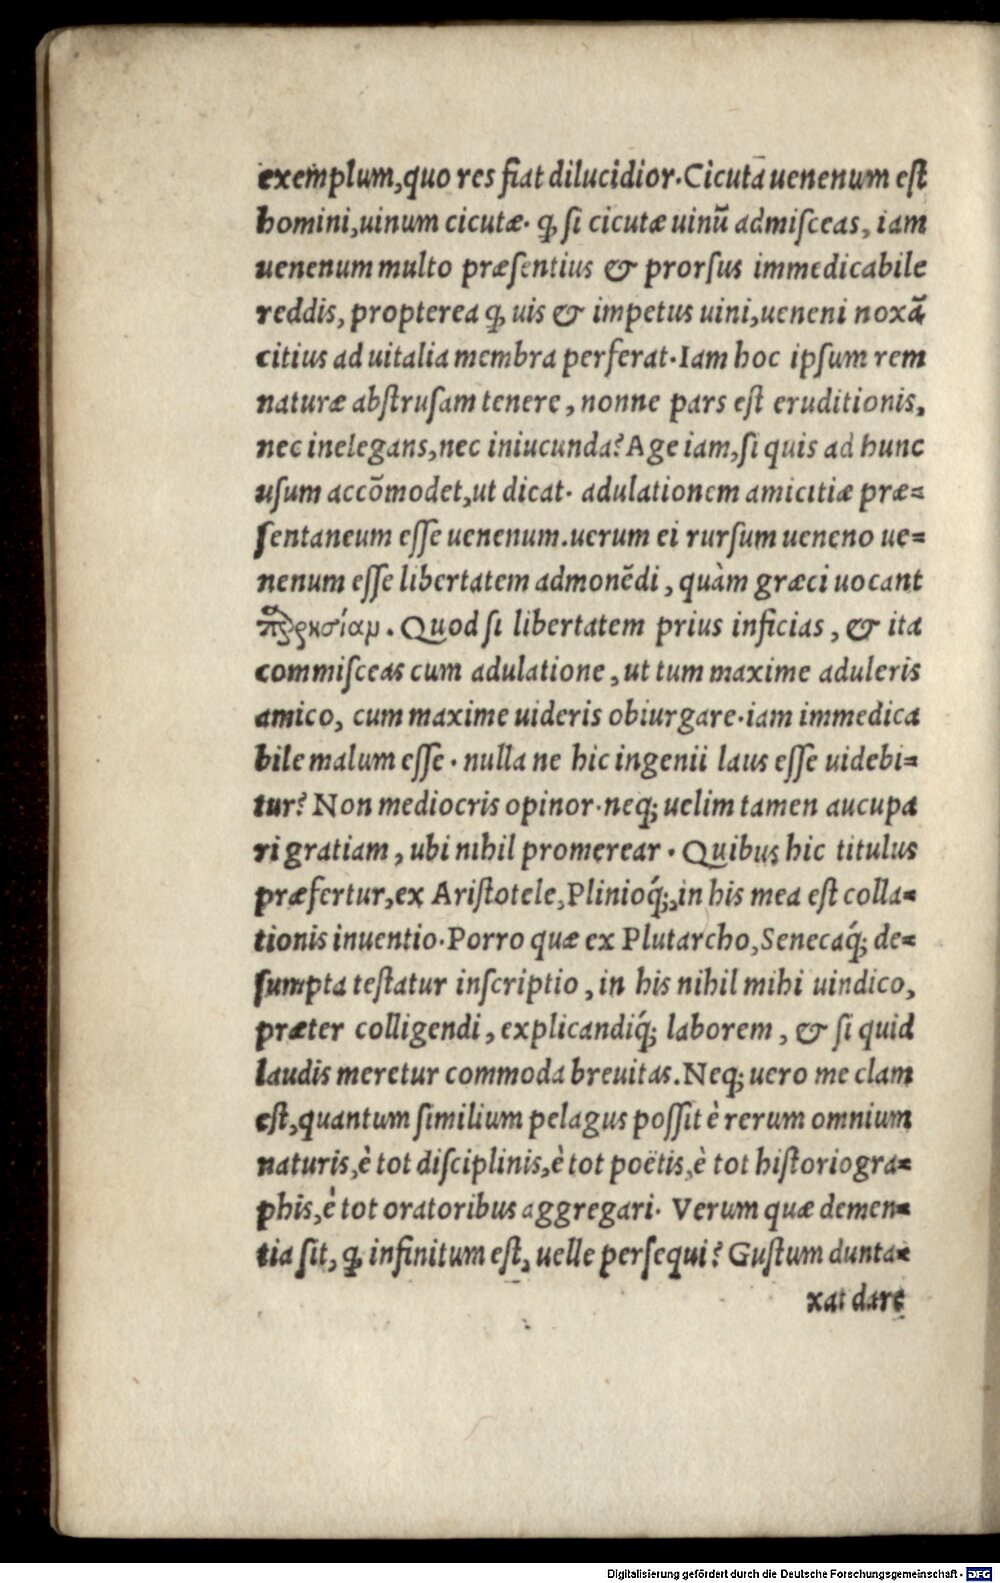 exemplum, quo res fiat dilucidior. Cicuta uenenum est
homini, uinum cicutæ. ꝙ si cicutæ uinũ admisceas, iam
uenenum multo præsentius & prorsus immedicabile
reddis, propterea ꝙ uis & impetus uini, ueneni noxã
citius ad uitalia membra perferat. Iam hoc ipsum rem
naturæ abstrusam tenere, nonne pars est eruditionis,
nec inelegans, nec iniucunda? Age iam, si quis ad hunc
usum accõmodet, ut dicat. adulationem amicitiæ præ=
sentaneum esse uenenum. uerum ei rursum ueneno ue=
nenum esse libertatem admonẽdi, quàm græci uocant
παρρησίαν. Quod si libertatem prius inficias, & ita
commisceas cum adulatione, ut tum maxime aduleris
amico, cum maxime uideris obiurgare. iam immedica
bile malum esse. nulla ne hic ingenii laus esse uidebi=
tur? Non mediocris opinor. neq; uelim tamen aucupa
ri gratiam, ubi nihil promerear. Quibus hic titulus
præfertur, ex Aristotele, Plinioq́;, in his mea est colla=
tionis inuentio. Porro quæ ex Plutarcho, Senecaq́; de=
sumpta testatur inscriptio, in his nihil mihi uindico,
præter colligendi, explicandiq́; laborem, & si quid
laudis meretur commoda breuitas. Neq; uero me clam
est, quantum similium pelagus possit è rerum omnium
naturis, è tot disciplinis, è tot poëtis, è tot historiogra=
phis, è tot oratoribus aggregari. Verum quæ demen=
tia sit, ꝙ infinitum est, uelle persequi? Gustum dunta=
xat dare
Digitalisierung gefördert durch die Deutsche Forschungsgemeinschaft - DFG